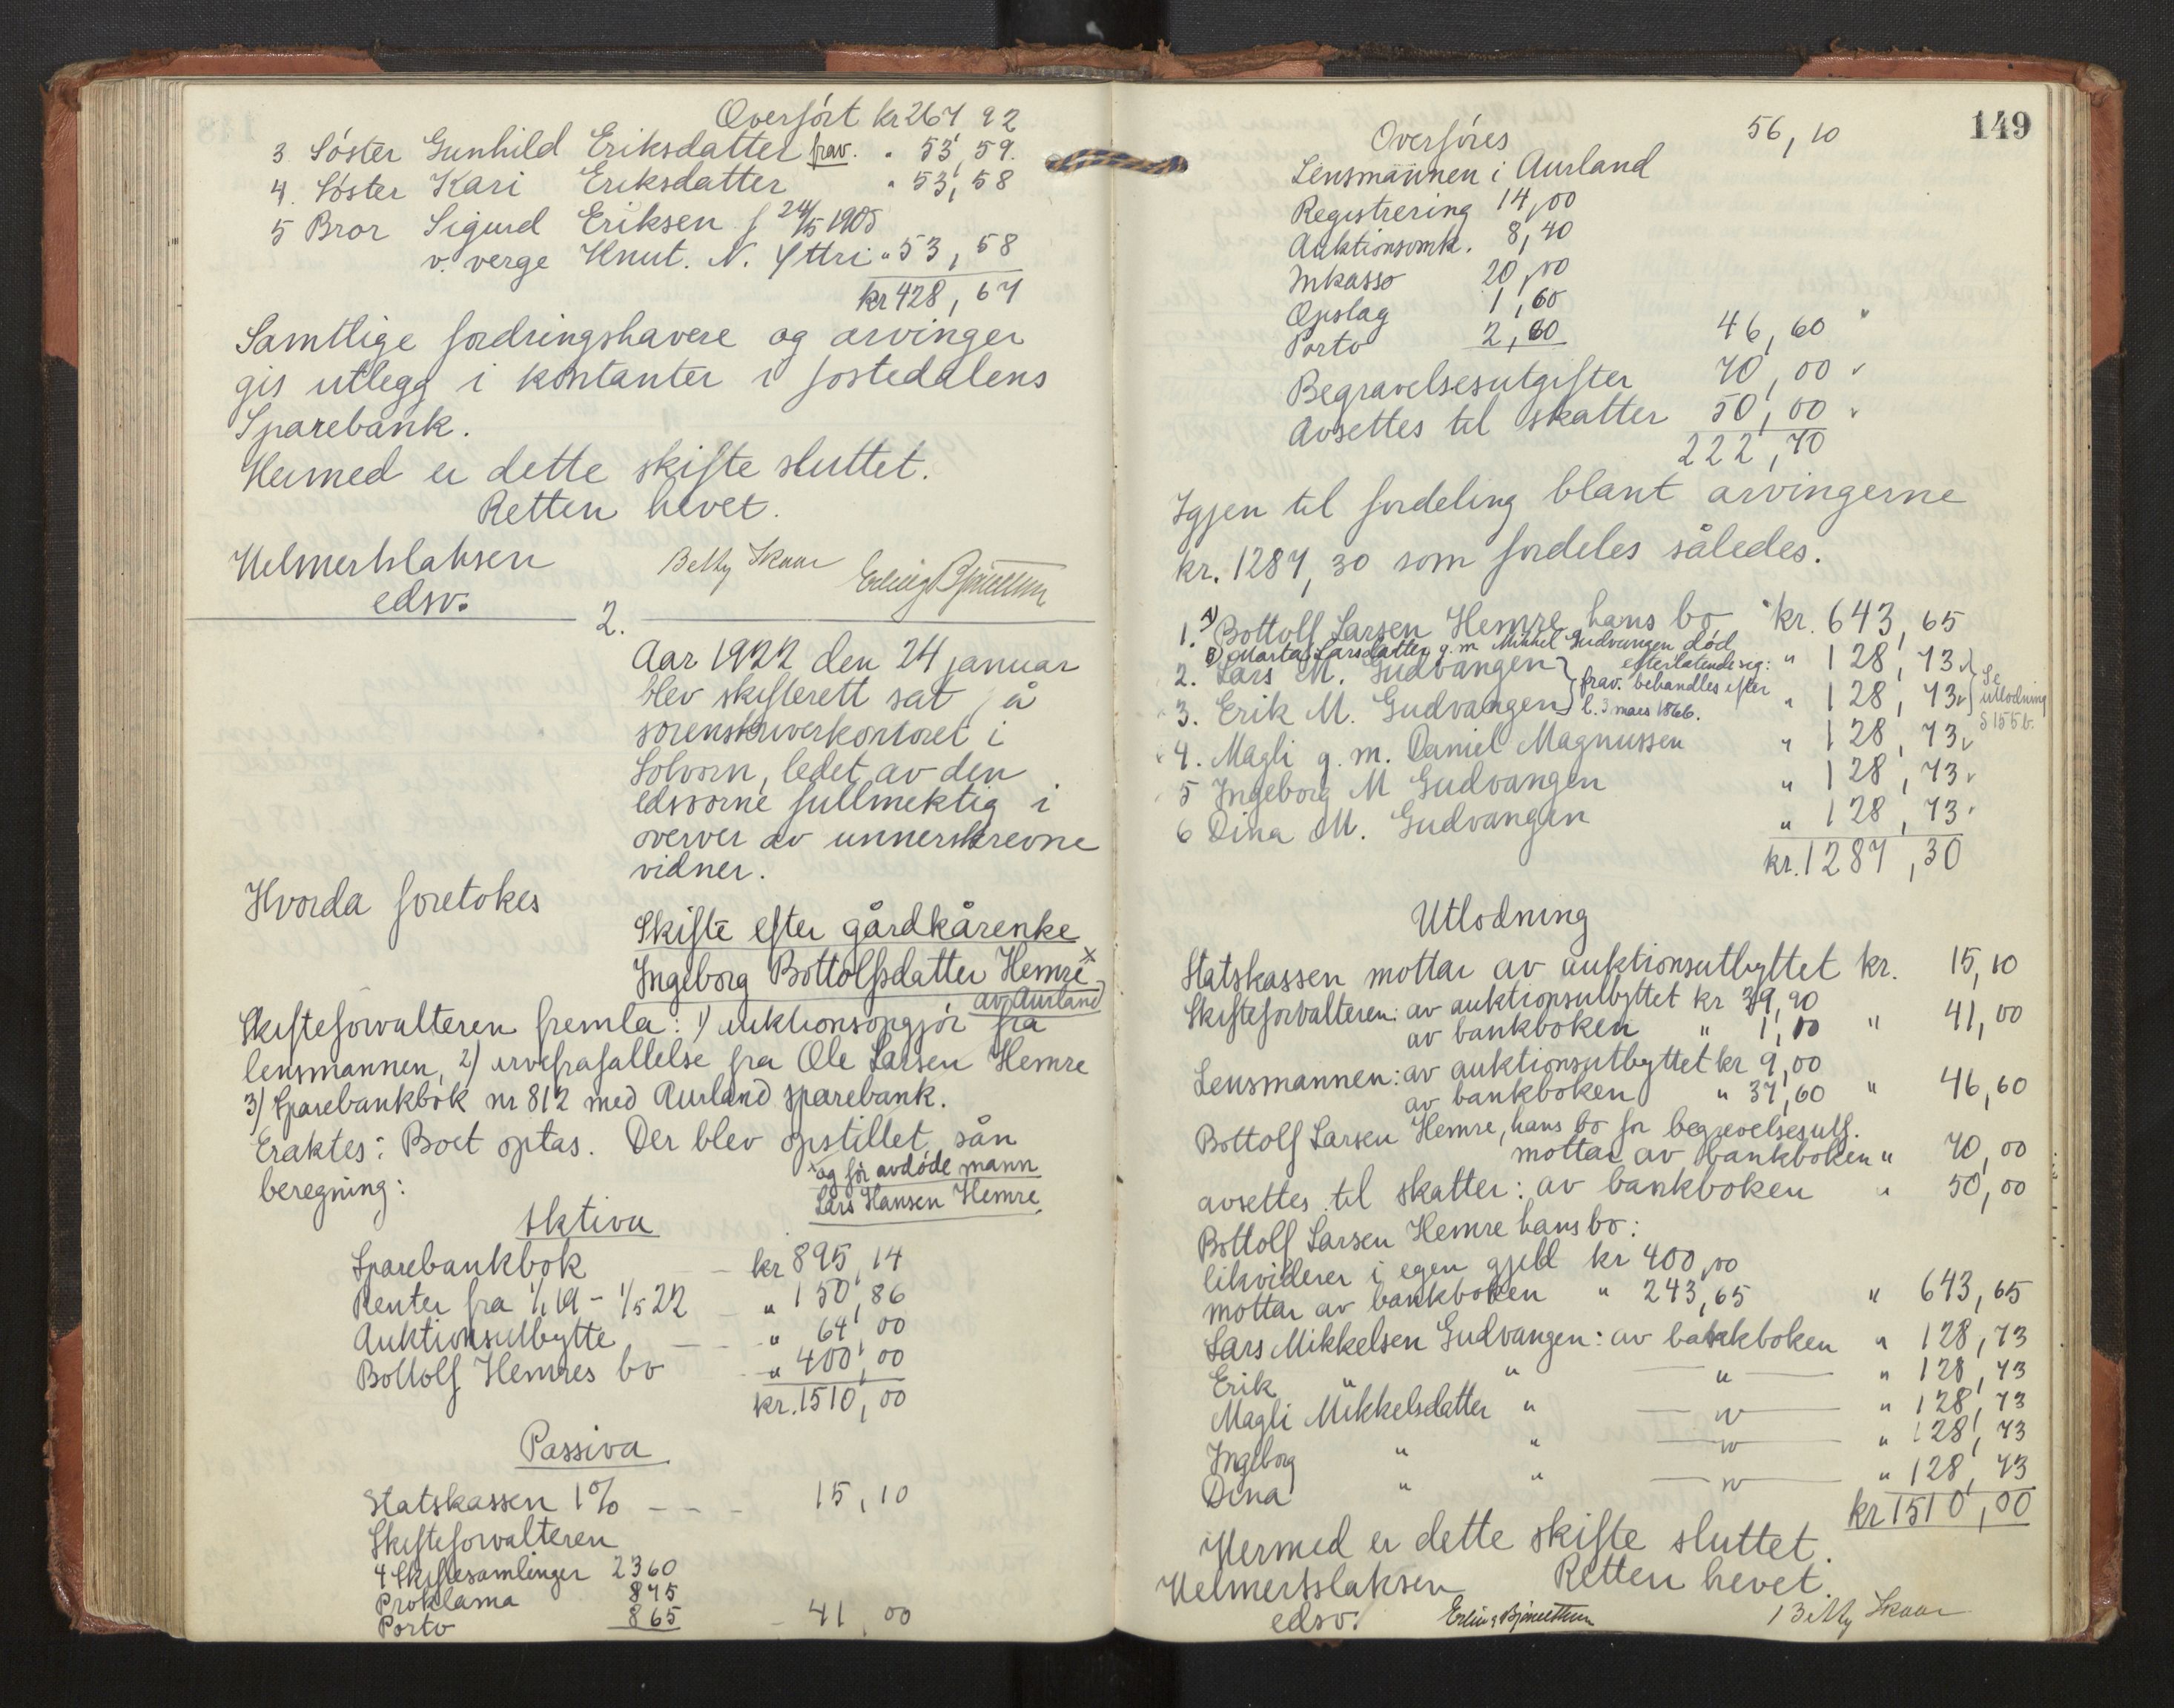 Overført kr 267 92
3. Søster Gunhild Eriksdatter frav. " 53,59.
4. Søster Kari Eriksdatter " 53,58
5 Bror Sigurd Eriksen f 24/5 1905
v. verge Knut. N. Yttri " 53,58
kr 428,67
Samtlige fordringshavere og arvinger
gis utlegg i kontanter i Jostedalens
Sparebank.
Hermed er dette skifte sluttet.
Retten hevet.
edsv.
Betty Skaar
2.
Aar 1922 den 24 januar
blev skifterett sat på
sorenskriverkontoret i
Solvorn, ledet av den
edsvorne fullmektig i
overver av unnerskrevne
vidner.
Hvorda foretokes
Skifte efter gårdkårenke
Ingeborg Bottolfsdatter Hemre x
av Aurland
Skifteforvalteren fremla: 1) auktionsopgjør fra
lensmannen, 2) arvefrafallelse fra Ole Larsen Hemre
3) Sparebankbok nr 812 med Aurland sparebank.
Eraktes: Boet optas. Der blev opstillet sån
beregning:
x og før avdøde mann
Lars Hansen Hemre.
Aktiva
Sparebankbok kr 895,14
Renter fra 1/1 19 - 1/5 22 " 150,86
Auktionsutbytte " 64,00
Bottolf Hemres bo " 400,00
kr. 1510,00
Passiva
Statskassen 1% 15,10
Skifteforvalteren
4 Skiftesamlinger 2360
Proklama 875
Porto 865 41,00
149
Overføres 56,10
Lensmannen i Aurland
Registrering 14,00
Auktionsomk. 8,40
Inkasso 20,00
Opslag 1,60
Porto 2,60 46,60
Begravelsesutgifter 70,00
Avsettes til skatter 50,00
222,70
Igjen til fordeling blant arvingerne
kr. 1287,30 som fordeles således.
1. A) Bottolf Larsen Hemre hans bo kr. 643,65
B) Marta Larsdatter g. m. Mikkel Gudvangen død
efterlatende sig:
2. Lars M. Gudvangen " 128,73
3. Erik M. Gudvangen " 128,73
frav. behandles efter
l. 3 mars 1866.
Se
utlodning
S 155 b.
4. Magli g. m. Daniel Magnussen " 128,73
5 Ingeborg M Gudvangen " 128,73
6 Dina M. Gudvangen " 128,73
kr. 1287,30
Utlodning
Statskassen mottar av auktionsutbyttet kr. 15,10
Skifteforvalteren: av auktionsutbyttet kr 39,90
av bankboken " 1,10 " 41,00
Lensmannen: av auktionsutbyttet kr 9,00
av bankboken " 37,60 " 46,60
Bottolf Larsen Hemre, hans bo for begravelsesutg.
mottar av bankboken " 70,00
avsettes til skatter: av bankboken " 50,00
Bottolf Larsen Hemre hans bo:
likviderer i egen gjeld kr 400,00
mottar av bankboken " 243,65 " 643,65
Lars Mikkelsen Gudvangen: av bankboken " 128,73
Erik " " — " — " 128,73
Magli Mikkelsdatter " — " — " 128,73
Ingeborg " " — " — " 128,73
Dina " " — " — " 128,73
kr 1510,00
Hermed er dette skifte sluttet.
Retten hevet.
edsv.
Betty Skaar